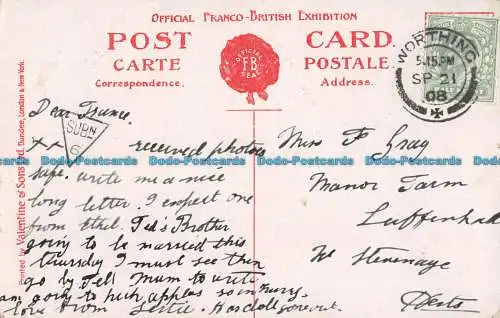 OFFICIAL FRANCO-BRITISH EXHIBITION
POST CARD
CARTE POSTALE
Correspondence. Address.
OFFICIAL
F.B
SEAL
WORTHING
5.15 PM
SP 21
08
SUBN
6
Printed by Valentine & Sons Ltd. Dundee, London & New York.
Dear
xx received photos
safe. write me a nice
long letter. I expect one
from Ethel. Ted's Brother
going to be married this
thursday I must see them
go by Tell Mum to write
am going to pick apples so in hurry
love from Gertie.
Miss F Gray
Manor Farm
Luffenhall
Nr Stevenage
Herts
Dodo-Postcards Dodo-Postcards Dodo-Postcards Dodo-Postcards Dodo-Postcards